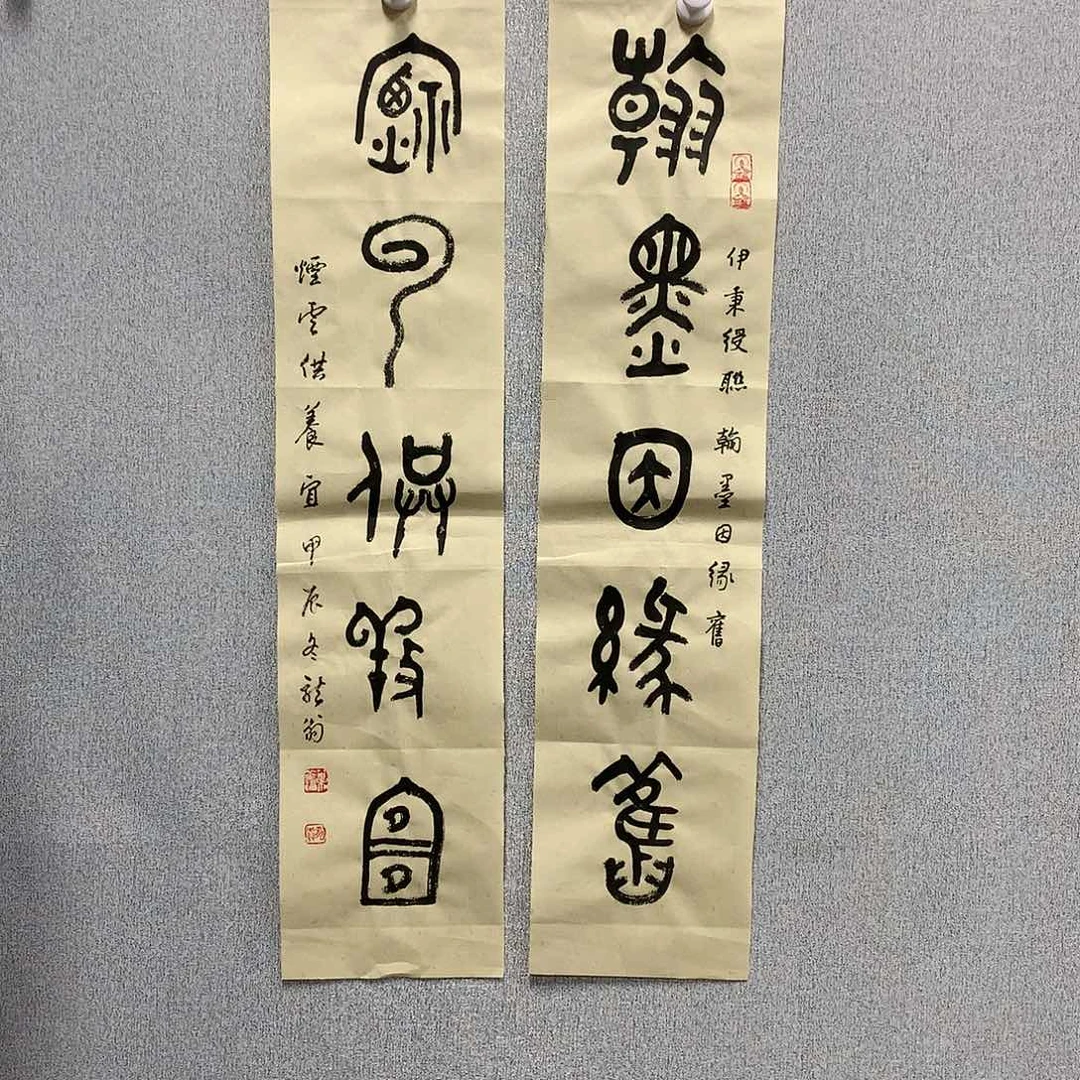 翰墨因緣舊
伊秉綬聯 翰墨因緣舊
煙雲供養宜
煙雲供養宜 甲辰冬 龍翁